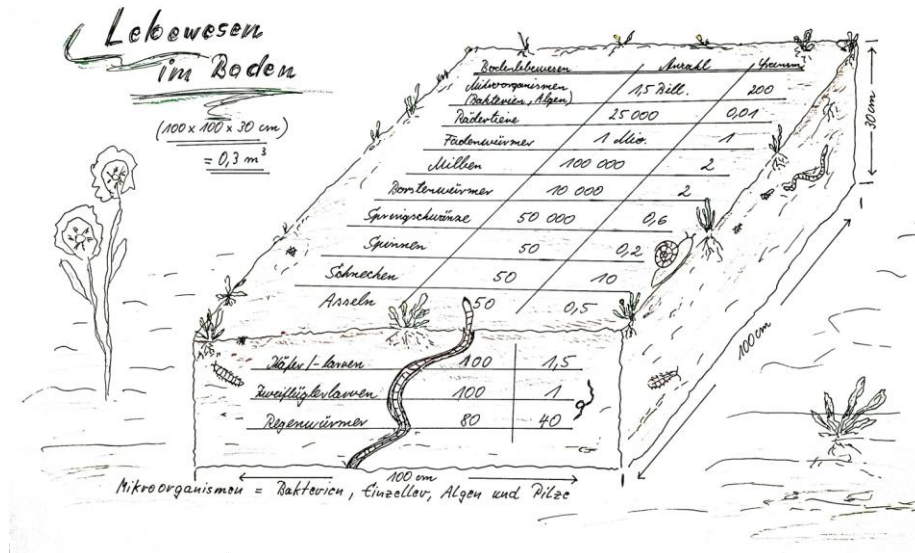 Lebewesen
im Boden
(100 x 100 x 30 cm)
= 0,3 m³
Bodenlebewesen Anzahl Gramm
Mikroorganismen
(Bakterien, Algen) 1,5 Bill. 200
Rädertiere 25 000 0,01
Fadenwürmer 1 Mio. 1
Milben 100 000 2
Borstenwürmer 10 000 2
Springschwänze 50 000 0,6
Spinnen 50 0,2
Schnecken 50 10
Asseln 50 0,5
Käfer/-larven 100 1,5
Zweiflüglerlarven 100 1
Regenwürmer 80 40
30 cm
100 cm
100 cm
Mikroorganismen = Bakterien, Einzeller, Algen und Pilze